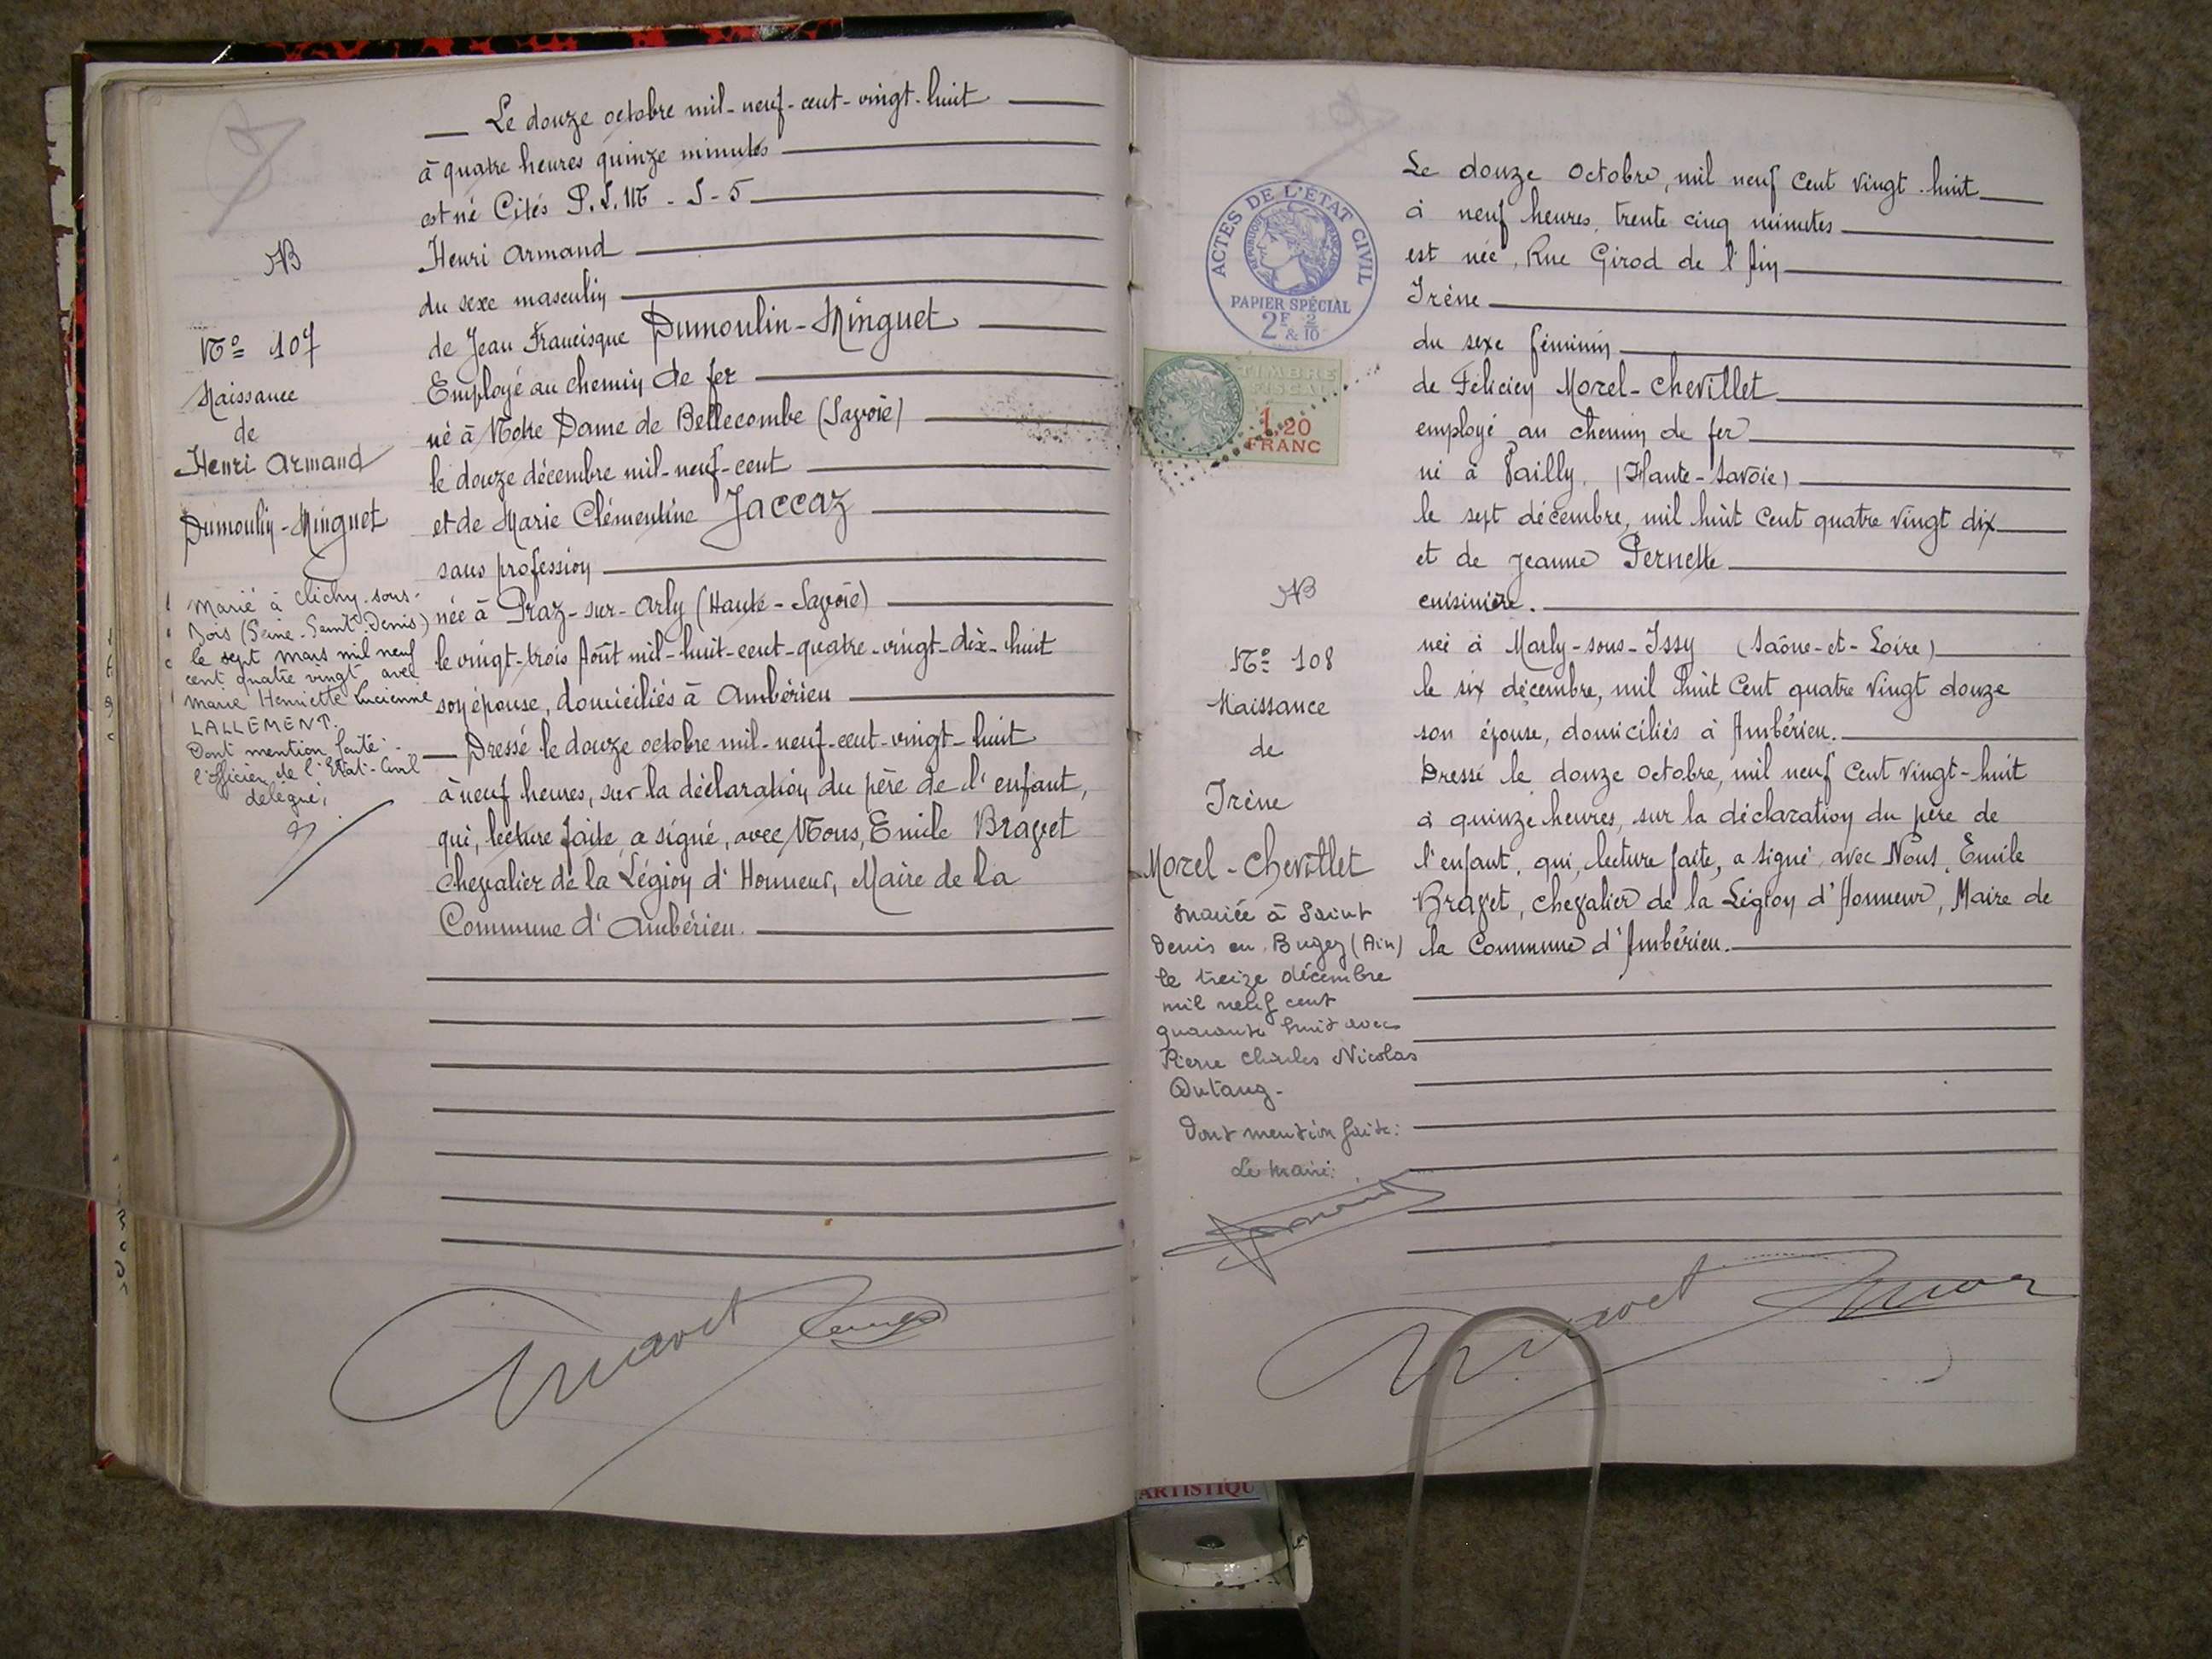 Le douze octobre mil-neuf-cent-vingt-huit
à quatre heures quinze minutes
est né Cités P.L.M - J - 5
Henri Armand
du sexe masculin
de Jean Francisque Dumoulin-Minguet
Employé au chemin de fer
né à Notre Dame de Bellecombe (Savoie)
le douze décembre mil-neuf-cent
et de Marie Clémentine Jaccaz
sans profession
née à Praz-sur-Arly (Haute-Savoie)
le vingt-trois Août mil-huit-cent-quatre-vingt-dix-huit
son épouse, domiciliés à Ambérieu
Dressé le douze octobre mil-neuf-cent-vingt-huit
à neuf heures, sur la déclaration du père de l'enfant,
qui, lecture faite, a signé, avec Nous, Emile Bravet
Chevalier de la Légion d'Honneur, Maire de la
Commune d'Ambérieu.
NB
No 107
Naissance
de
Henri Armand
Dumoulin-Minguet
Marié à Clichy-sous-
Bois (Seine-Saint-Denis)
le sept mars mil neuf
cent quatre vingt avec
Marie Henriette Lucienne
LALLEMENT.
Dont mention faite.
l'officier de l'Etat-Civil
délégué,
Bravet
ACTES DE L'ÉTAT CIVIL
RÉPUBLIQUE FRANÇAISE
PAPIER SPÉCIAL
2F & 2/10
TIMBRE
FISCAL
1,20
FRANC
Le douze Octobre, mil neuf cent vingt-huit
à neuf heures, trente cinq minutes
est née, Rue Girod de l'Ain
Irène
du sexe féminin
de Félicien Morel-Chevillet
employé au chemin de fer
né à Vailly, (Haute-Savoie)
le sept décembre, mil huit cent quatre vingt dix
et de Jeanne Pernette
cuisinière.
née à Marly-sous-Issy (Saône-et-Loire)
le six décembre, mil huit cent quatre vingt douze
son épouse, domiciliés à Ambérieu.
Dressé le douze Octobre, mil neuf cent vingt-huit
à quinze heures, sur la déclaration du père de
l'enfant, qui, lecture faite, a signé, avec Nous, Emile
Bravet, chevalier de la Légion d'Honneur, Maire de
la Commune d'Ambérieu.
NB
No 108
Naissance
de
Irène
Morel-Chevillet
mariée à Saint
Denis en Bugey (Ain)
le treize décembre
mil neuf cent
quarante huit avec
Pierre Charles Nicolas
Dont mention faite:
Le maire:
Bravet
ARTISTIQU